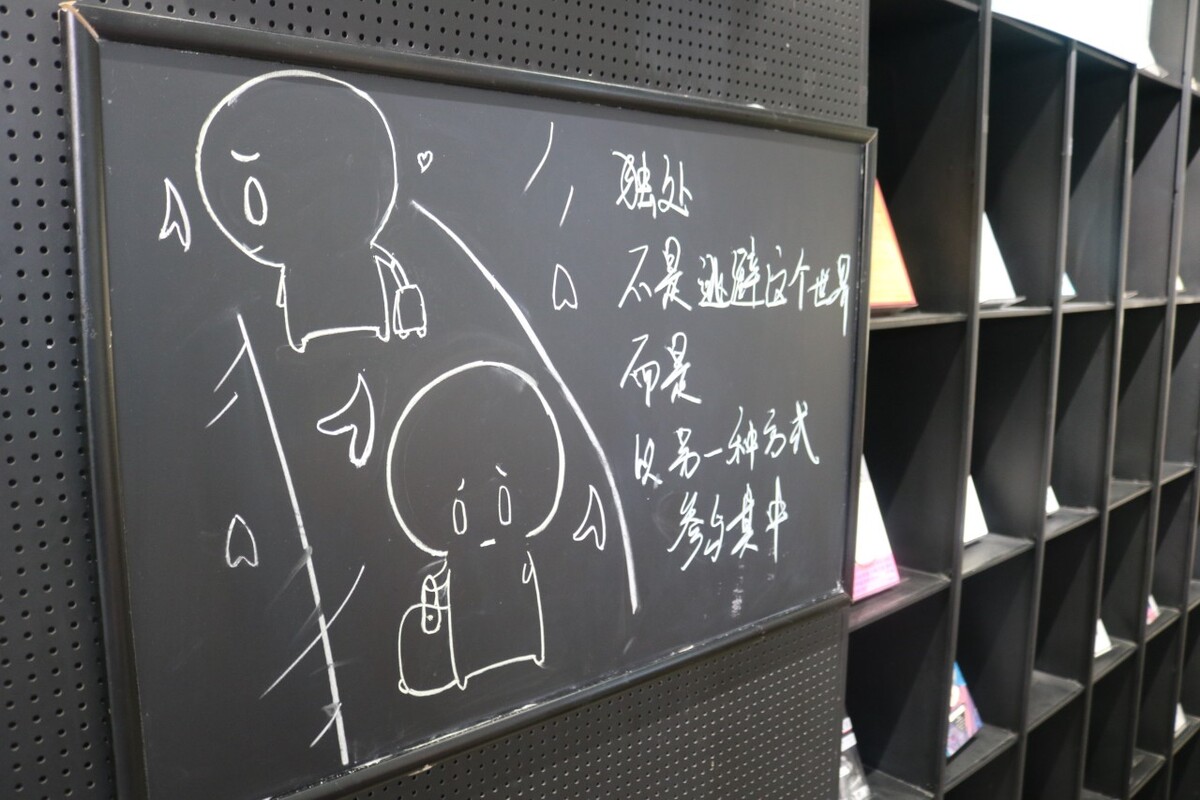 独处
不是逃避这个世界
而是
以另一种方式
参与其中